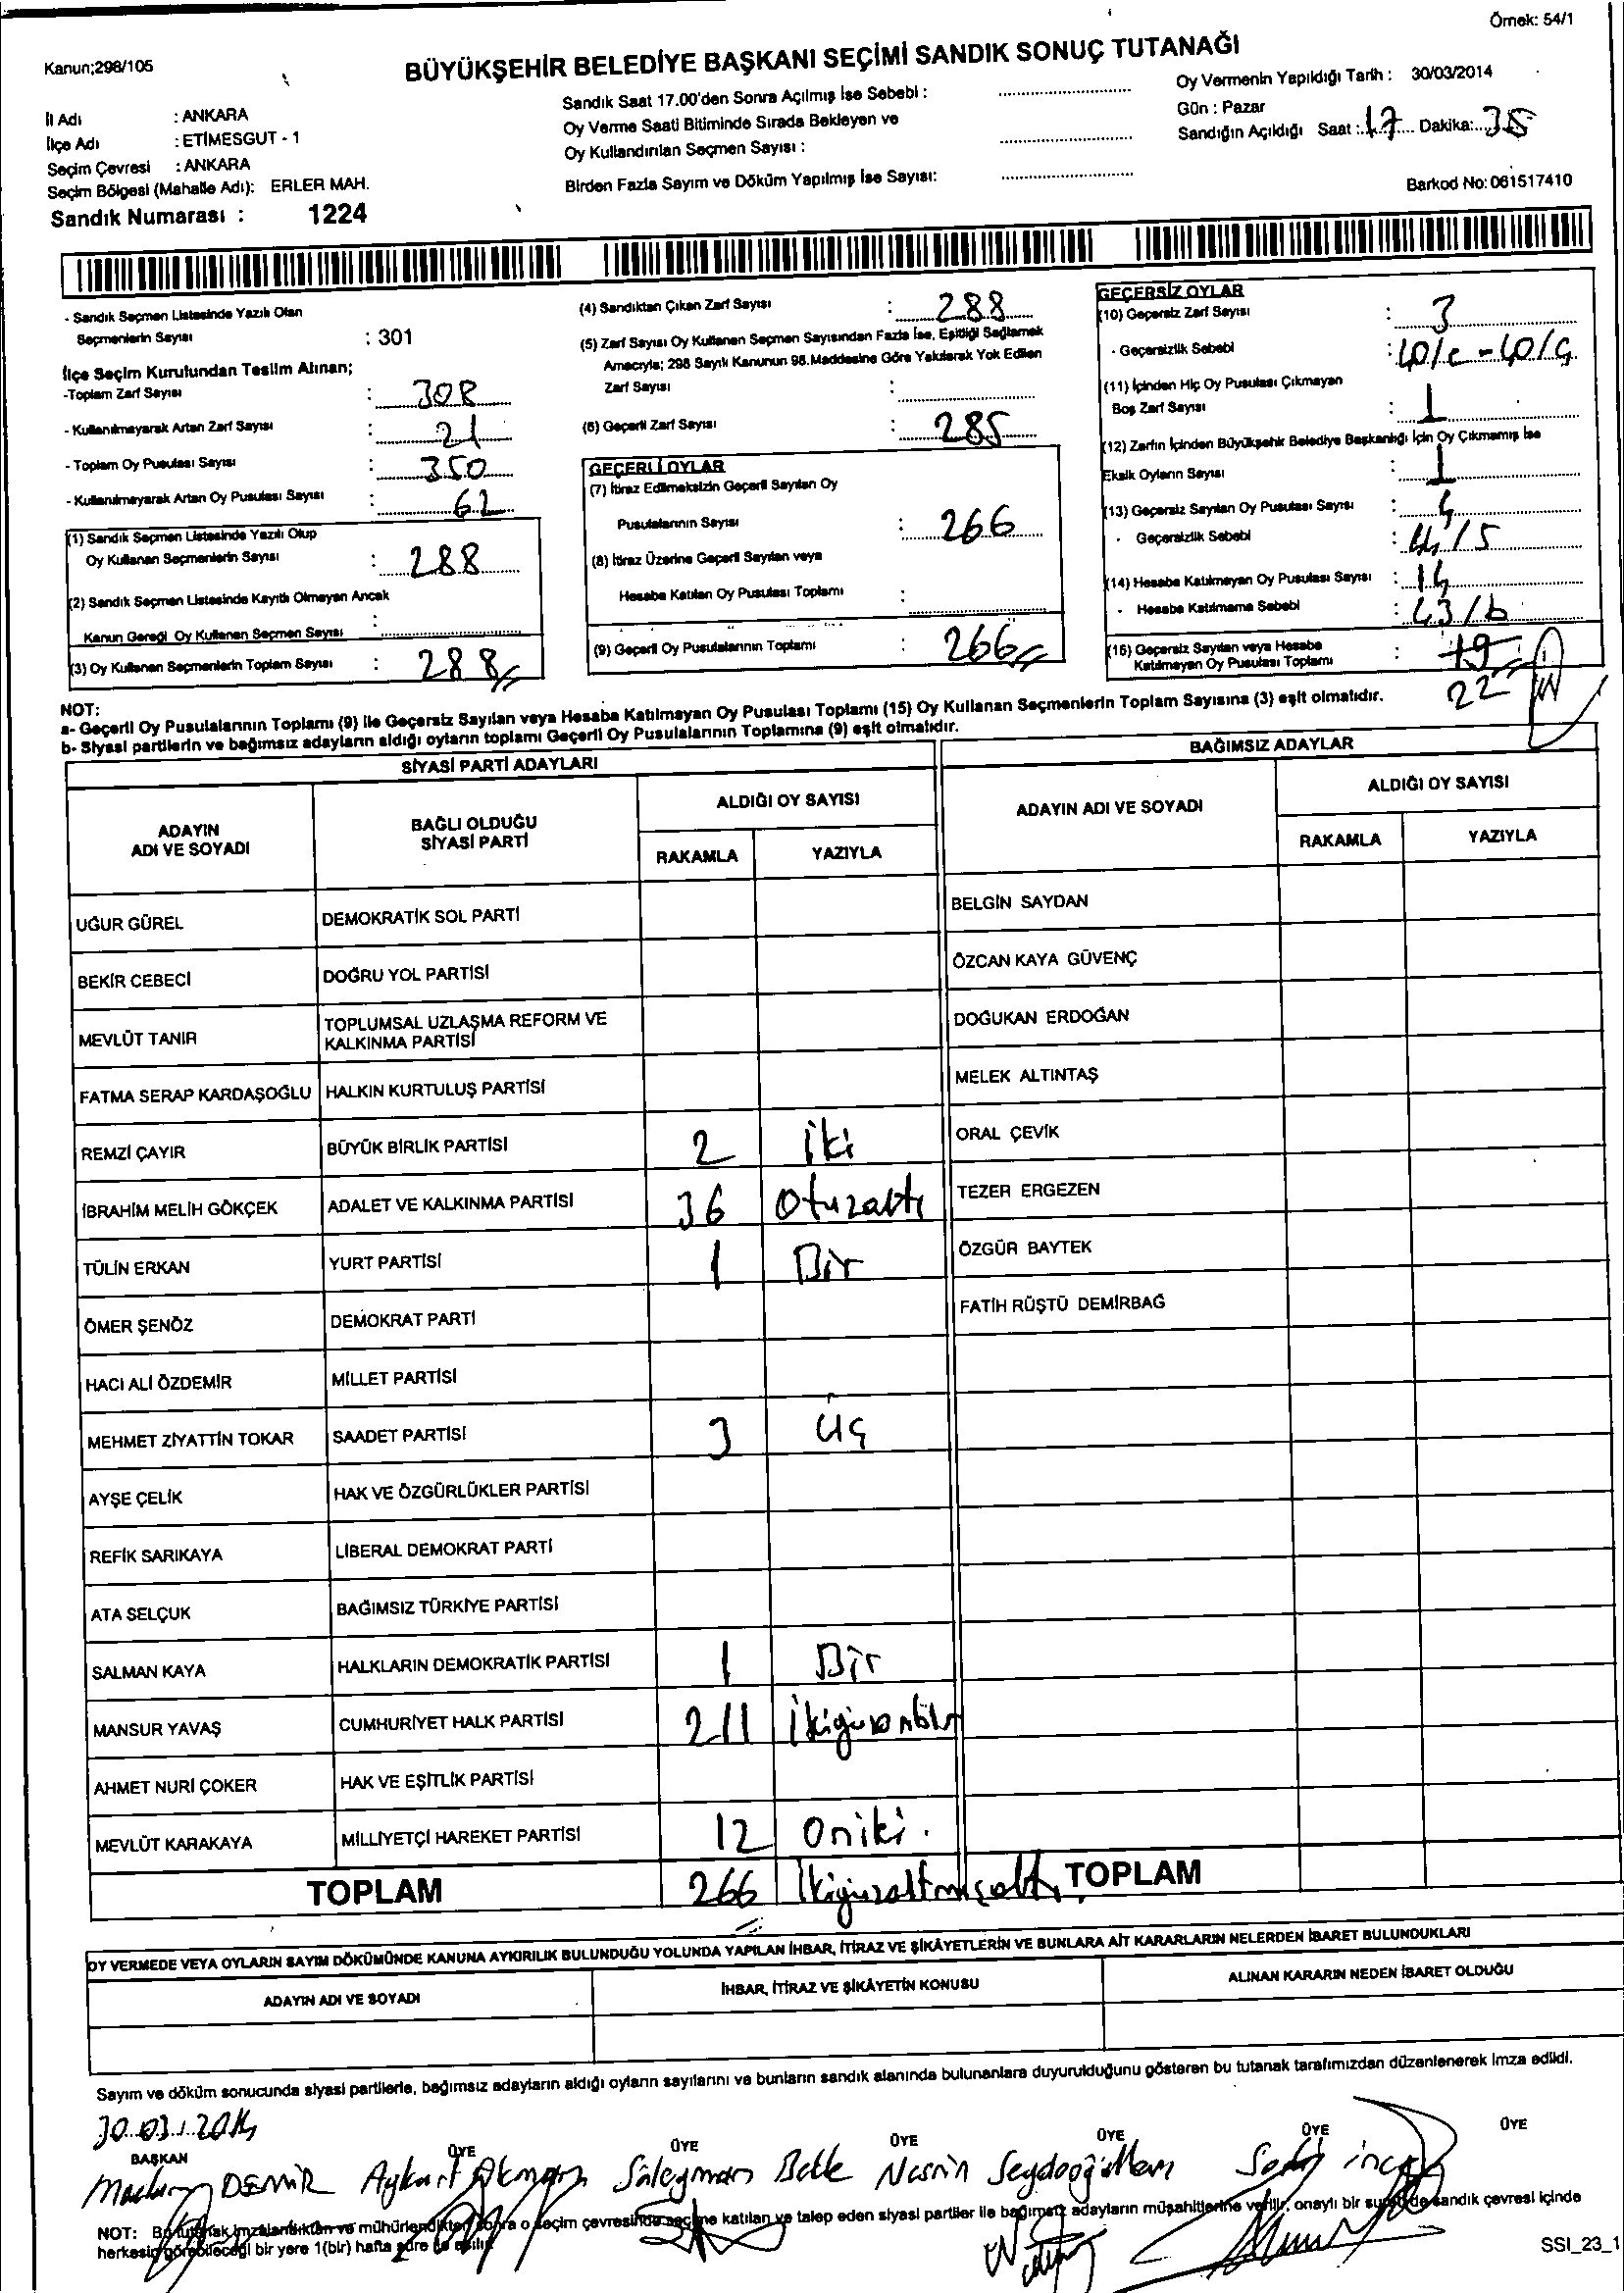 Örnek: 54/1
Kanun;298/105
BÜYÜKŞEHİR BELEDİYE BAŞKANI SEÇİMİ SANDIK SONUÇ TUTANAĞI
İl Adı : ANKARA
İlçe Adı : ETİMESGUT - 1
Seçim Çevresi : ANKARA
Seçim Bölgesi (Mahalle Adı): ERLER MAH.
Sandık Numarası : 1224
Sandık Saat 17.00'den Sonra Açılmış İse Sebebi :
Oy Verme Saati Bitiminde Sırada Bekleyen ve
Oy Kullandırılan Seçmen Sayısı :
Birden Fazla Sayım ve Döküm Yapılmış İse Sayısı:
Oy Vermenin Yapıldığı Tarih : 30/03/2014
Gün : Pazar
Sandığın Açıldığı Saat : 17 Dakika: 35
Barkod No: 061517410
- Sandık Seçmen Listesinde Yazılı Olan
Seçmenlerin Sayısı : 301
İlçe Seçim Kurulundan Teslim Alınan;
-Toplam Zarf Sayısı : 308
- Kullanılmayarak Artan Zarf Sayısı : 21
- Toplam Oy Pusulası Sayısı : 350
- Kullanılmayarak Artan Oy Pusulası Sayısı : 62
(1) Sandık Seçmen Listesinde Yazılı Olup
Oy Kullanan Seçmenlerin Sayısı : 288
(2) Sandık Seçmen Listesinde Kayıtlı Olmayan Ancak
Kanun Gereği Oy Kullanan Seçmen Sayısı :
(3) Oy Kullanan Seçmenlerin Toplam Sayısı : 288
(4) Sandıktan Çıkan Zarf Sayısı : 288
(5) Zarf Sayısı Oy Kullanan Seçmen Sayısından Fazla İse, Eşitliği Sağlamak
Amacıyla; 298 Sayılı Kanunun 98.Maddesine Göre Yakılarak Yok Edilen
Zarf Sayısı :
(6) Geçerli Zarf Sayısı : 285
GEÇERLİ OYLAR
(7) İtiraz Edilmeksizin Geçerli Sayılan Oy
Pusulalarının Sayısı : 266
(8) İtiraz Üzerine Geçerli Sayılan veya
Hesaba Katılan Oy Pusulası Toplamı :
(9) Geçerli Oy Pusulalarının Toplamı : 266
GEÇERSİZ OYLAR
(10) Geçersiz Zarf Sayısı : 3
- Geçersizlik Sebebi : 40/c - 40/ç
(11) İçinden Hiç Oy Pusulası Çıkmayan
Boş Zarf Sayısı : 1
(12) Zarfın İçinden Büyükşehir Belediye Başkanlığı İçin Oy Çıkmamış İse
Eksik Oyların Sayısı : 1
(13) Geçersiz Sayılan Oy Pusulası Sayısı : 4
- Geçersizlik Sebebi : 41/5
(14) Hesaba Katılmayan Oy Pusulası Sayısı : 14
- Hesaba Katılmama Sebebi : 43/b
(15) Geçersiz Sayılan veya Hesaba
Katılmayan Oy Pusulası Toplamı : 19
22
NOT:
a- Geçerli Oy Pusulalarının Toplamı (9) ile Geçersiz Sayılan veya Hesaba Katılmayan Oy Pusulası Toplamı (15) Oy Kullanan Seçmenlerin Toplam Sayısına (3) eşit olmalıdır.
b- Siyasi partilerin ve bağımsız adayların aldığı oyların toplamı Geçerli Oy Pusulalarının Toplamına (9) eşit olmalıdır.
SİYASİ PARTİ ADAYLARI
ADAYIN ADI VE SOYADI
BAĞLI OLDUĞU SİYASİ PARTİ
ALDIĞI OY SAYISI
RAKAMLA YAZIYLA
UĞUR GÜREL DEMOKRATİK SOL PARTİ
BEKİR CEBECİ DOĞRU YOL PARTİSİ
MEVLÜT TANIR TOPLUMSAL UZLAŞMA REFORM VE KALKINMA PARTİSİ
FATMA SERAP KARDAŞOĞLU HALKIN KURTULUŞ PARTİSİ
REMZİ ÇAYIR BÜYÜK BİRLİK PARTİSİ 2 iki
İBRAHİM MELİH GÖKÇEK ADALET VE KALKINMA PARTİSİ 36 Otuzaltı
TÜLİN ERKAN YURT PARTİSİ 1 Bir
ÖMER ŞENÖZ DEMOKRAT PARTİ
HACI ALİ ÖZDEMİR MİLLET PARTİSİ
MEHMET ZİYATTİN TOKAR SAADET PARTİSİ 3 üç
AYŞE ÇELİK HAK VE ÖZGÜRLÜKLER PARTİSİ
REFİK SARIKAYA LİBERAL DEMOKRAT PARTİ
ATA SELÇUK BAĞIMSIZ TÜRKİYE PARTİSİ
SALMAN KAYA HALKLARIN DEMOKRATİK PARTİSİ 1 Bir
MANSUR YAVAŞ CUMHURİYET HALK PARTİSİ 211
AHMET NURİ ÇOKER HAK VE EŞİTLİK PARTİSİ
MEVLÜT KARAKAYA MİLLİYETÇİ HAREKET PARTİSİ 12 Oniki.
TOPLAM 266
BAĞIMSIZ ADAYLAR
ADAYIN ADI VE SOYADI
ALDIĞI OY SAYISI
RAKAMLA YAZIYLA
BELGİN SAYDAN
ÖZCAN KAYA GÜVENÇ
DOĞUKAN ERDOĞAN
MELEK ALTINTAŞ
ORAL ÇEVİK
TEZER ERGEZEN
ÖZGÜR BAYTEK
FATİH RÜŞTÜ DEMİRBAĞ
TOPLAM
OY VERMEDE VEYA OYLARIN SAYIM DÖKÜMÜNDE KANUNA AYKIRILIK BULUNDUĞU YOLUNDA YAPILAN İHBAR, İTİRAZ VE ŞİKÂYETLERİN VE BUNLARA AİT KARARLARIN NELERDEN İBARET BULUNDUKLARI
ADAYIN ADI VE SOYADI
İHBAR, İTİRAZ VE ŞİKÂYETİN KONUSU
ALINAN KARARIN NEDEN İBARET OLDUĞU
Sayım ve döküm sonucunda siyasi partilerle, bağımsız adayların aldığı oyların sayılarını ve bunların sandık alanında bulunanlara duyurulduğunu gösteren bu tutanak tarafımızdan düzenlenerek imza edildi.
30.03.2014
BAŞKAN ÜYE ÜYE ÜYE ÜYE ÜYE ÜYE
DEMİR Aykurt Akman Süleyman Nesrin
NOT: Bu tutanak imzalandıktan ve mühürlendikten sonra o seçim çevresinde seçime katılan ve talep eden siyasi partiler ile bağımsız adayların müşahitlerine verilir, onaylı bir sureti de sandık çevresi içinde
herkesin görebileceği bir yere 1(bir) hafta süre ile asılır.
SSI_23_1